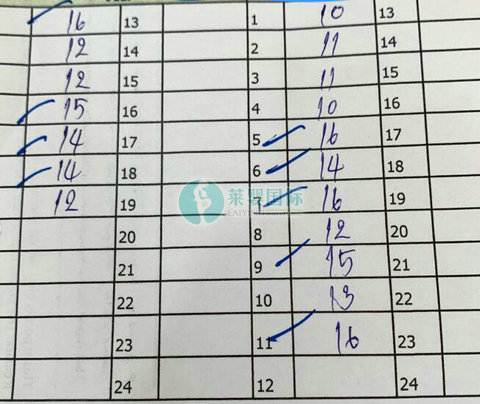 16 13 1 10 13
12 14 2 11 14
12 15 3 11 15
15 16 4 10 16
14 17 5 16 17
14 18 6 14 18
12 19 7 16 19
莱婴国际
20 8 12 20
21 9 15 21
22 10 13 22
23 11 16 23
24 12 24